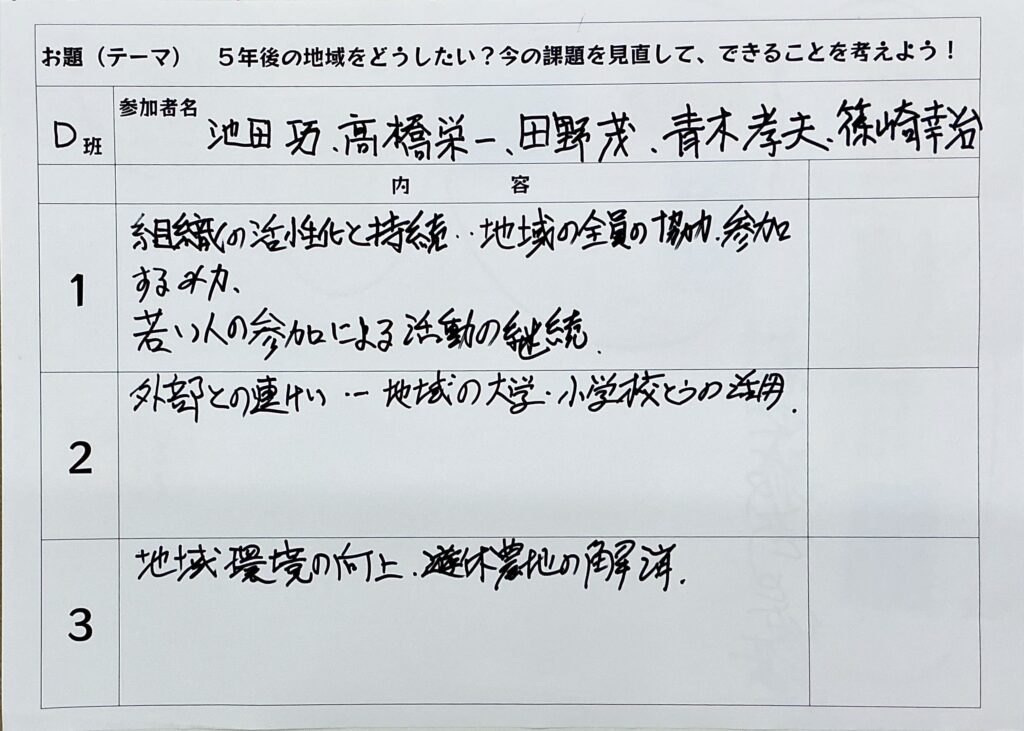 お題（テーマ）　５年後の地域をどうしたい？今の課題を見直して、できることを考えよう！
D班
参加者名
池田巧、高橋栄一、田野茂、青木孝夫、篠崎幸治
内　容
1
組織の活性化と持続‥地域の全員の協力、参加
する
若い人の参加による活動の継続.
2
外部との連けい‥地域の大学・小学校とうの活用.
3
地域環境の向上、遊休農地の解消.